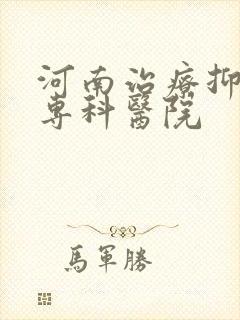 河南治療抑
專科醫院
馬軍勝